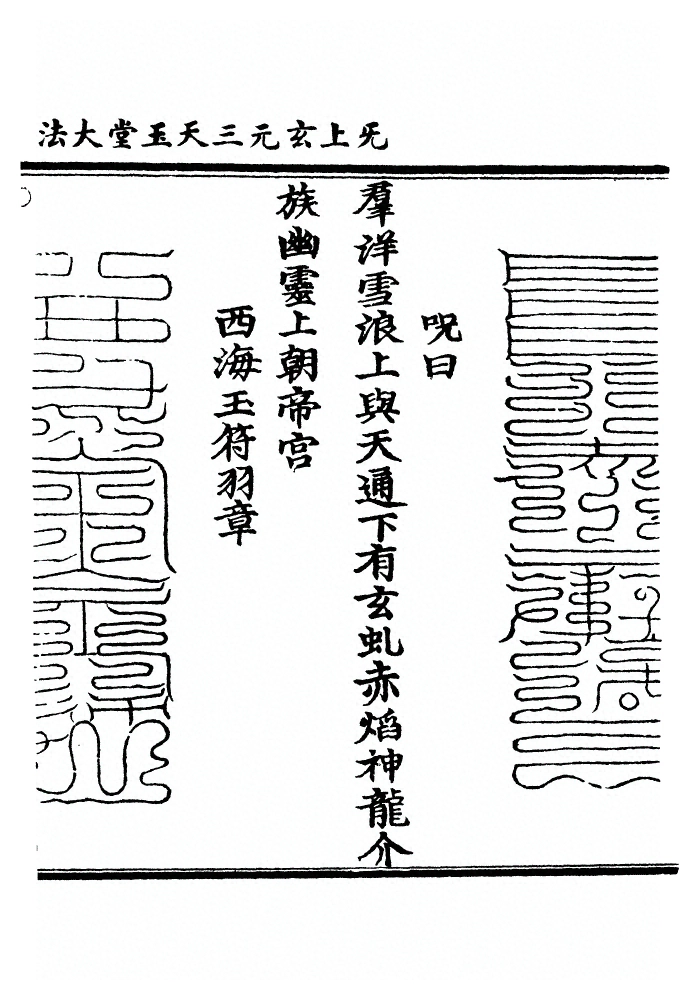 旡上玄元三天玉堂大法
呪曰
羣洋雪浪上與天通下有玄虬赤熖神龍介
族幽靈上朝帝宫
西海玉符羽章